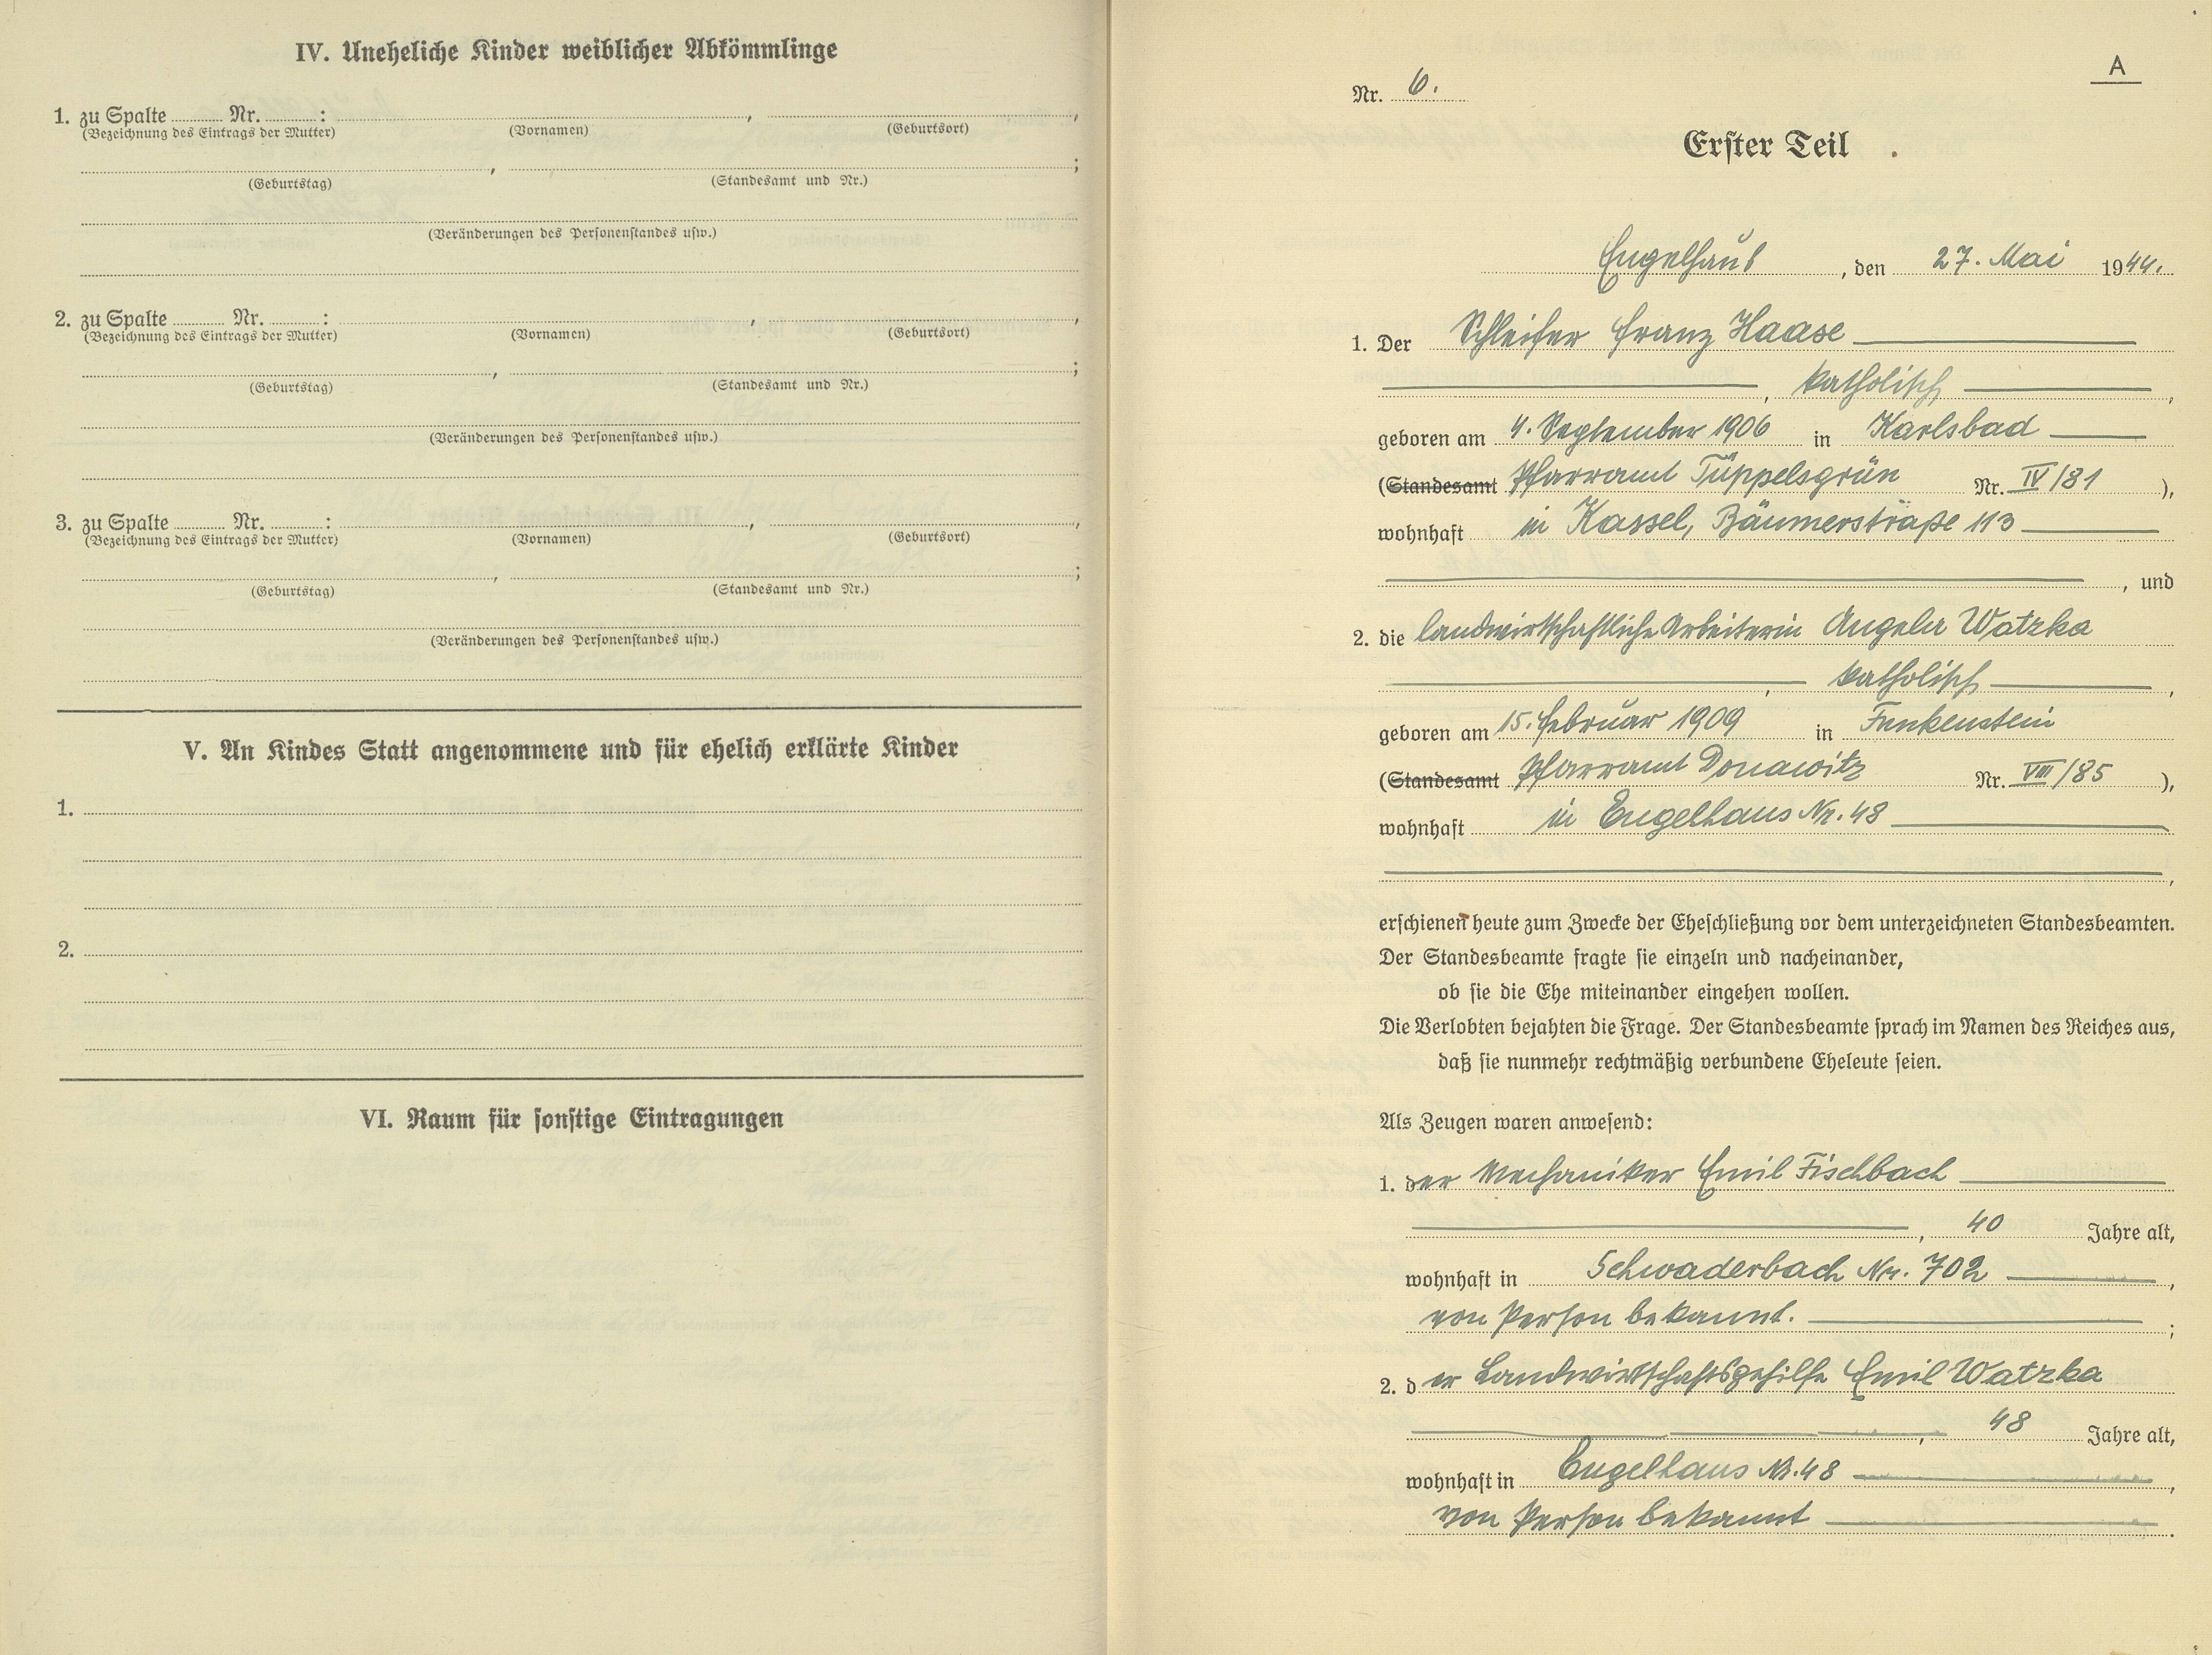 IV. Uneheliche Kinder weiblicher Abkömmlinge
1. zu Spalte ........ Nr. ........ : , ,
(Bezeichnung des Eintrags der Mutter) (Vornamen) (Geburtsort)
, ;
(Geburtstag) (Standesamt und Nr.)
(Veränderungen des Personenstandes usw.)
2. zu Spalte ........ Nr. ........ : , ,
(Bezeichnung des Eintrags der Mutter) (Vornamen) (Geburtsort)
, ;
(Geburtstag) (Standesamt und Nr.)
(Veränderungen des Personenstandes usw.)
3. zu Spalte ........ Nr. ........ : , ,
(Bezeichnung des Eintrags der Mutter) (Vornamen) (Geburtsort)
, ;
(Geburtstag) (Standesamt und Nr.)
(Veränderungen des Personenstandes usw.)
V. An Kindes Statt angenommene und für ehelich erklärte Kinder
1.
2.
VI. Raum für sonstige Eintragungen
A
Nr. 6.
Erster Teil
Engelhaus, den 27. Mai 1944.
1. Der Schleifer Franz Haase
, katholisch,
geboren am 4. September 1906 in Karlsbad
(Standesamt Pfarramt Tüppelsgrün Nr. IV/81),
wohnhaft in Kassel, Bäumerstraße 113
, und
2. die landwirtschaftliche Arbeiterin Angela Watzka
, katholisch,
geboren am 15. Februar 1909 in Funkenstein
(Standesamt Pfarramt Donawitz Nr. VIII/85),
wohnhaft in Engelhaus Nr. 48
,
erschienen heute zum Zwecke der Eheschließung vor dem unterzeichneten Standesbeamten.
Der Standesbeamte fragte sie einzeln und nacheinander,
ob sie die Ehe miteinander eingehen wollen.
Die Verlobten bejahten die Frage. Der Standesbeamte sprach im Namen des Reiches aus,
daß sie nunmehr rechtmäßig verbundene Eheleute seien.
Als Zeugen waren anwesend:
1. der Mechaniker Emil Fischbach
, 40 Jahre alt,
wohnhaft in Schwaderbach Nr. 702,
von Person bekannt. ;
2. der Landwirtschaftsgehilfe Emil Watzka
, 48 Jahre alt,
wohnhaft in Engelhaus Nr. 48,
von Person bekannt.